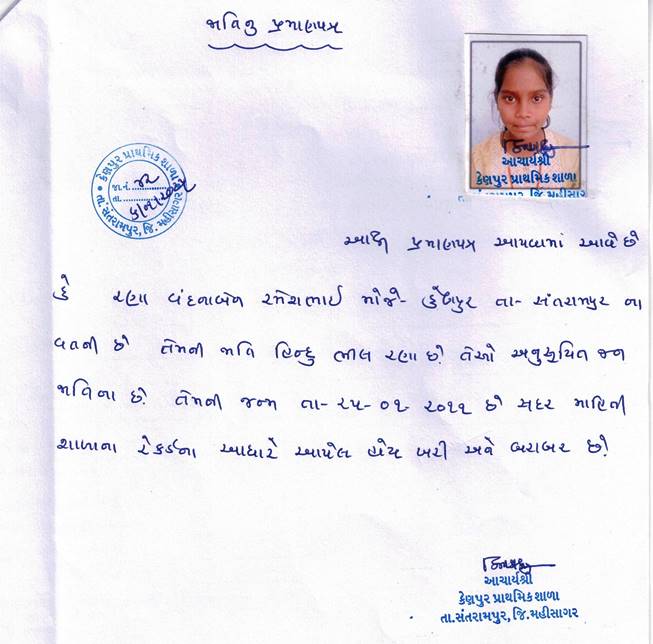 જાતિનું પ્રમાણપત્ર
આચાર્યશ્રી
કેણપુર પ્રાથમિક શાળા
કેણપુર પ્રાથમિક શાળા
જા.નં. ૪૨
તા.
તા. સંતરામપુર, જિ. મહીસાગર
આથી પ્રમાણપત્ર આપવામાં આવે છે
કે રણા વંદનાબેન રમેશભાઈ મોજે- કેણપુર તા- સંતરામપુર ના
વતની છે તેમની જાતિ હિન્દુ ભીલ રણા છે. તેઓ અનુસૂચિત જન
જાતિના છે. તેમની જન્મ તા- ૨૫-૦૧-૨૦૧૧ છે સદર માહિતી
શાળાના રેકર્ડના આધારે આપેલ હોય ખરી અને બરાબર છે.
આચાર્યશ્રી
કેણપુર પ્રાથમિક શાળા
તા.સંતરામપુર, જિ.મહીસાગર